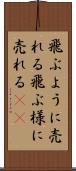 飛ぶように売
れる飛ぶ様に
売れる